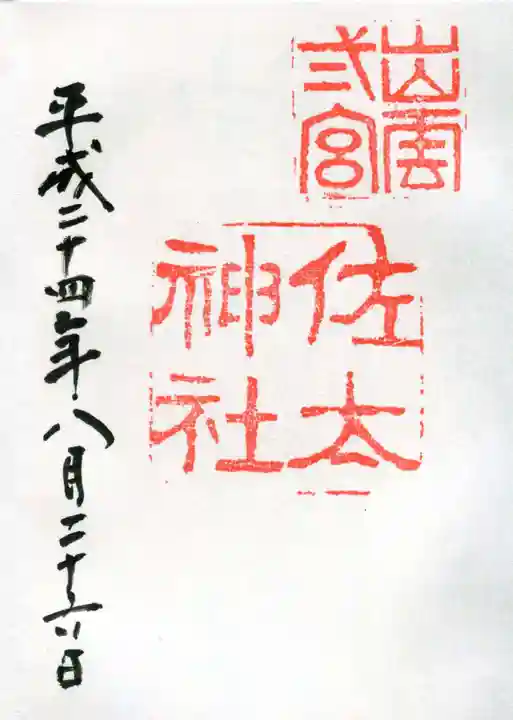 出雲
弍宮
佐太
神社
平成二十四年八月二十六日